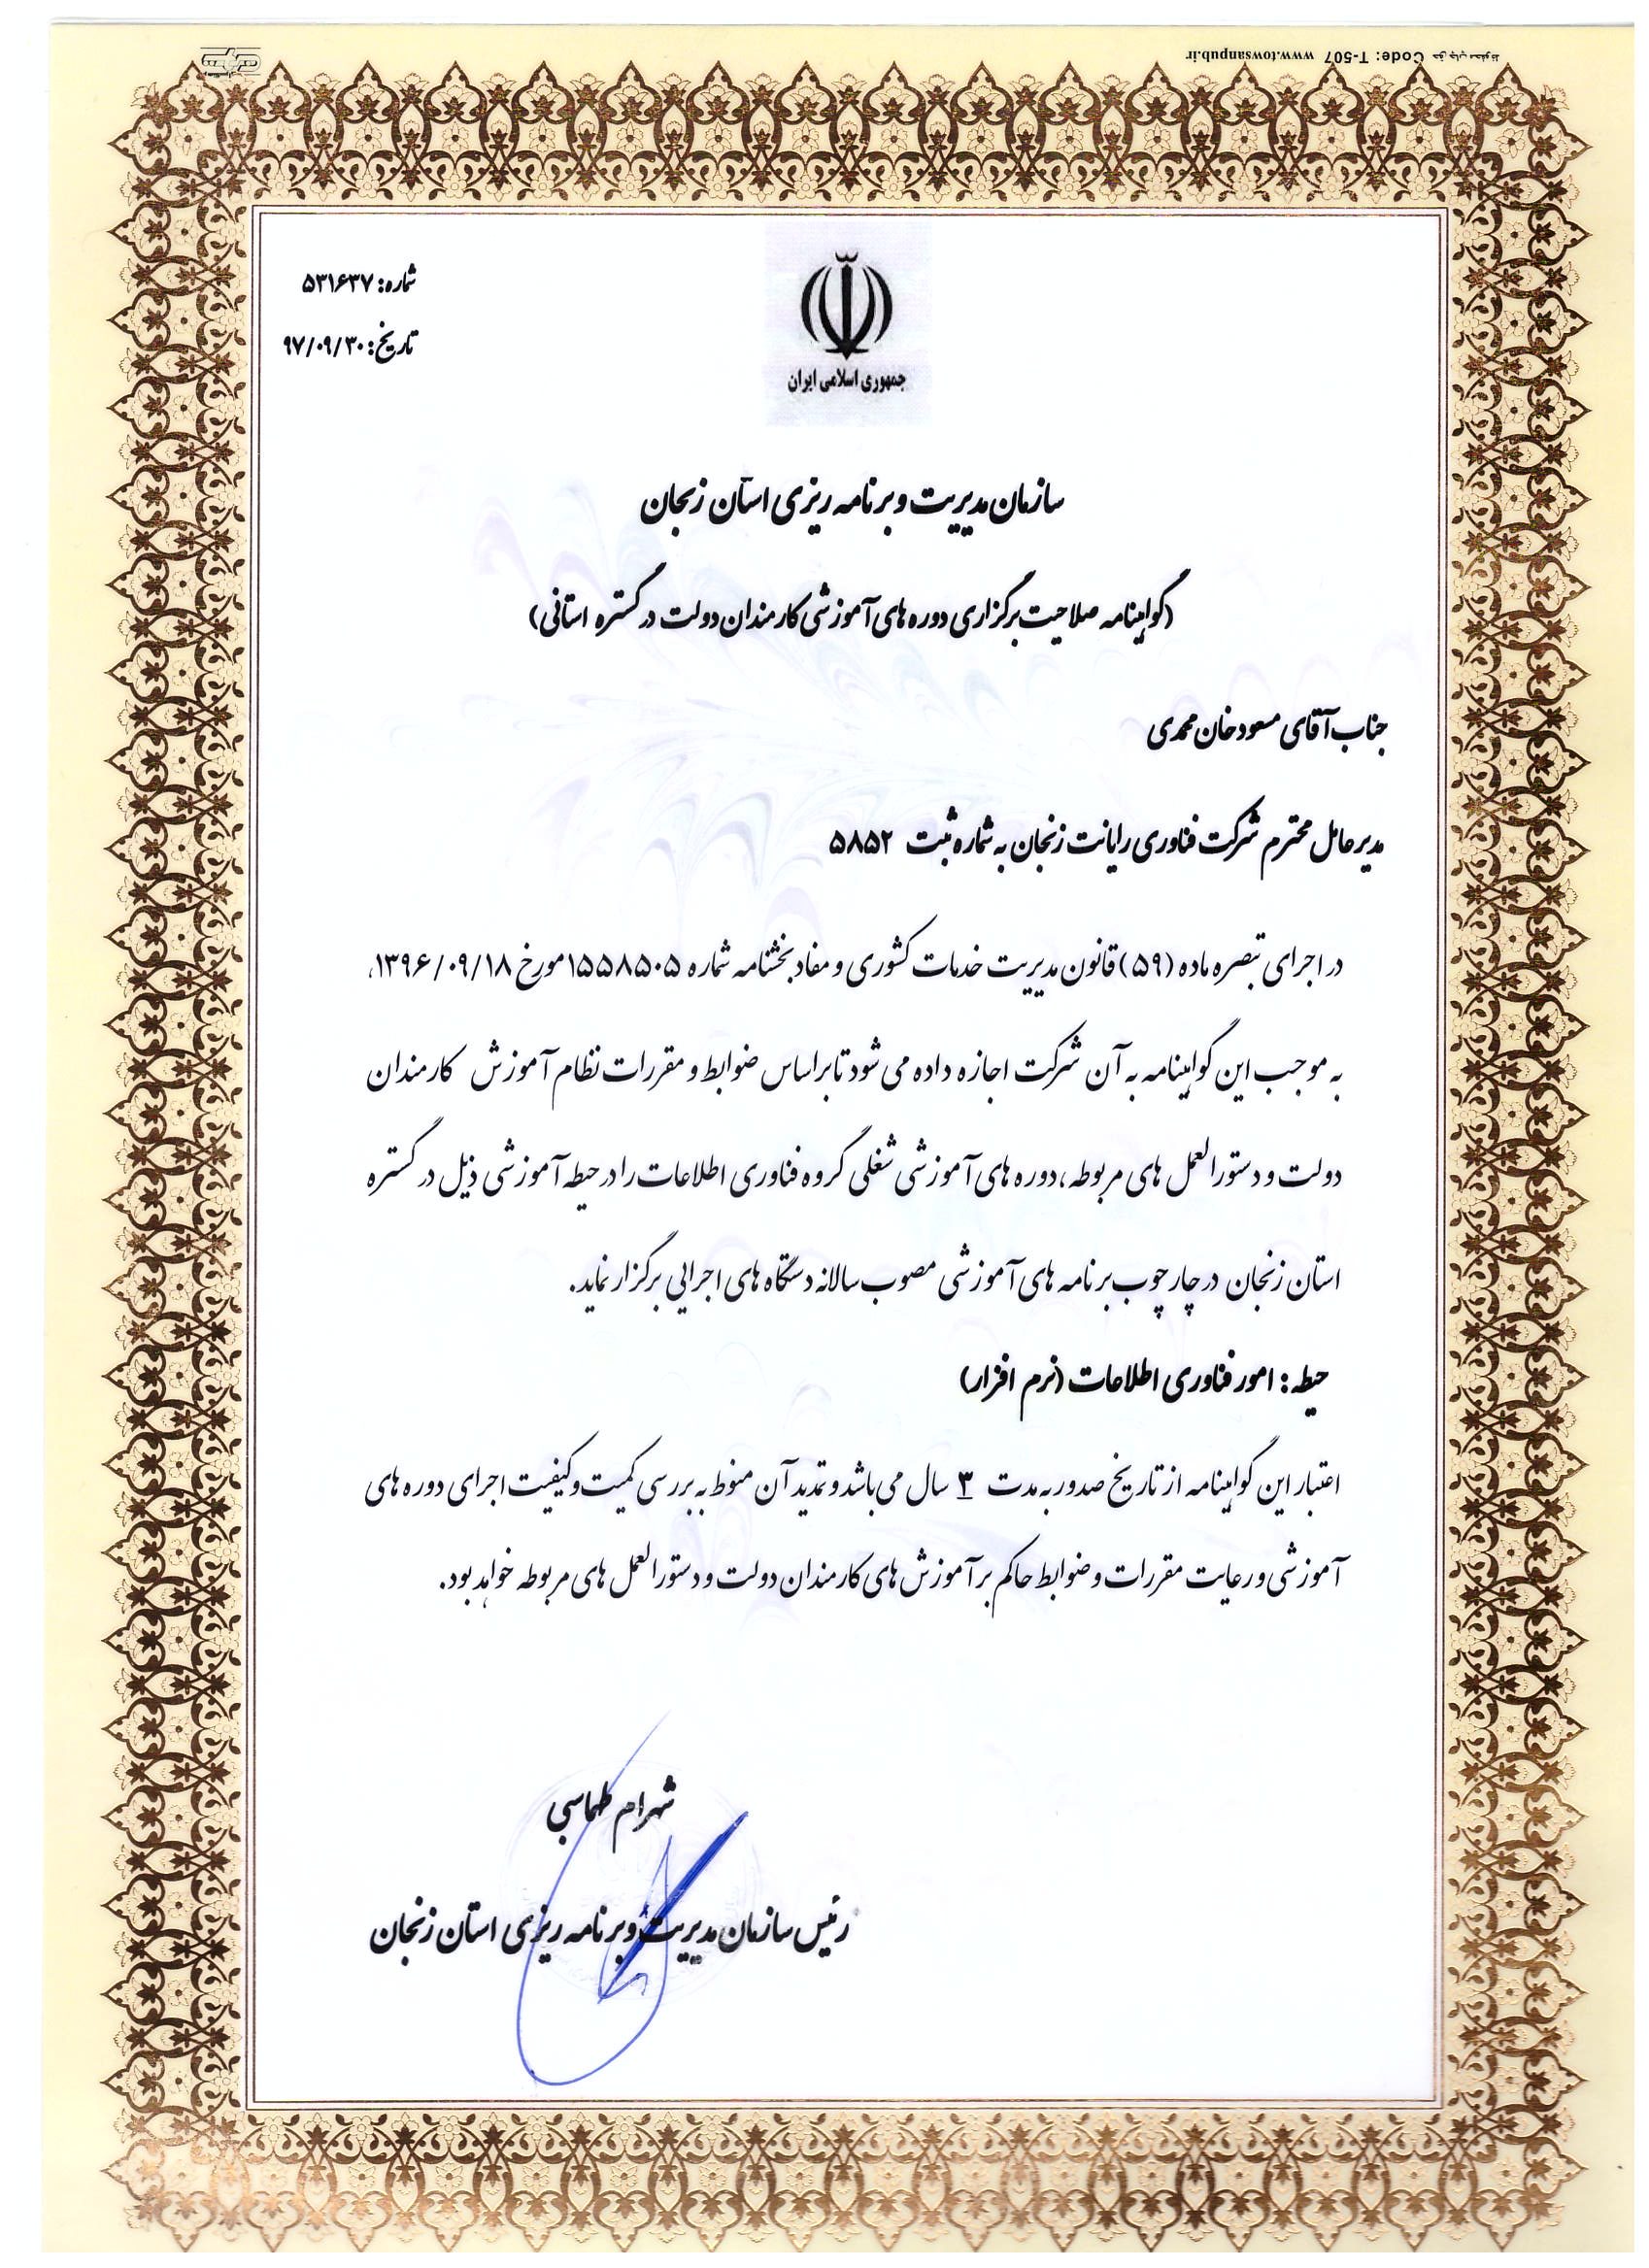 حق چاپ محفوظ Code: T-507 www.towsanpub.ir
شماره: ۵۳۱۶۳۷
تاریخ: ۹۷/۰۹/۳۰
جمهوری اسلامی ایران
سازمان مدیریت و برنامه ریزی استان زنجان
(گواهینامه صلاحیت برگزاری دوره های آموزشی کارمندان دولت در گستره استانی)
جناب آقای مسعود خان محمدی
مدیر عامل محترم شرکت فناوری رایانت زنجان به شماره ثبت ۵۸۵۲
در اجرای تبصره ماده (۵۹) قانون مدیریت خدمات کشوری و مفاد بخشنامه شماره ۱۵۵۸۵۰۵ مورخ ۱۳۹۶/۰۹/۱۸،
به موجب این گواهینامه به آن شرکت اجازه داده می شود تا براساس ضوابط و مقررات نظام آموزش کارمندان
دولت و دستورالعمل های مربوطه، دوره های آموزشی شغلی گروه فناوری اطلاعات را در حیطه آموزشی ذیل در گستره
استان زنجان در چارچوب برنامه های آموزشی مصوب سالانه دستگاه های اجرایی برگزار نماید.
حیطه: امور فناوری اطلاعات (نرم افزار)
اعتبار این گواهینامه از تاریخ صدور به مدت ۳ سال می باشد و تمدید آن منوط به بررسی کمیت و کیفیت اجرای دوره های
آموزشی و رعایت مقررات و ضوابط حاکم بر آموزش های کارمندان دولت و دستورالعمل های مربوطه خواهد بود.
شهرام طهماسبی
رئیس سازمان مدیریت و برنامه ریزی استان زنجان